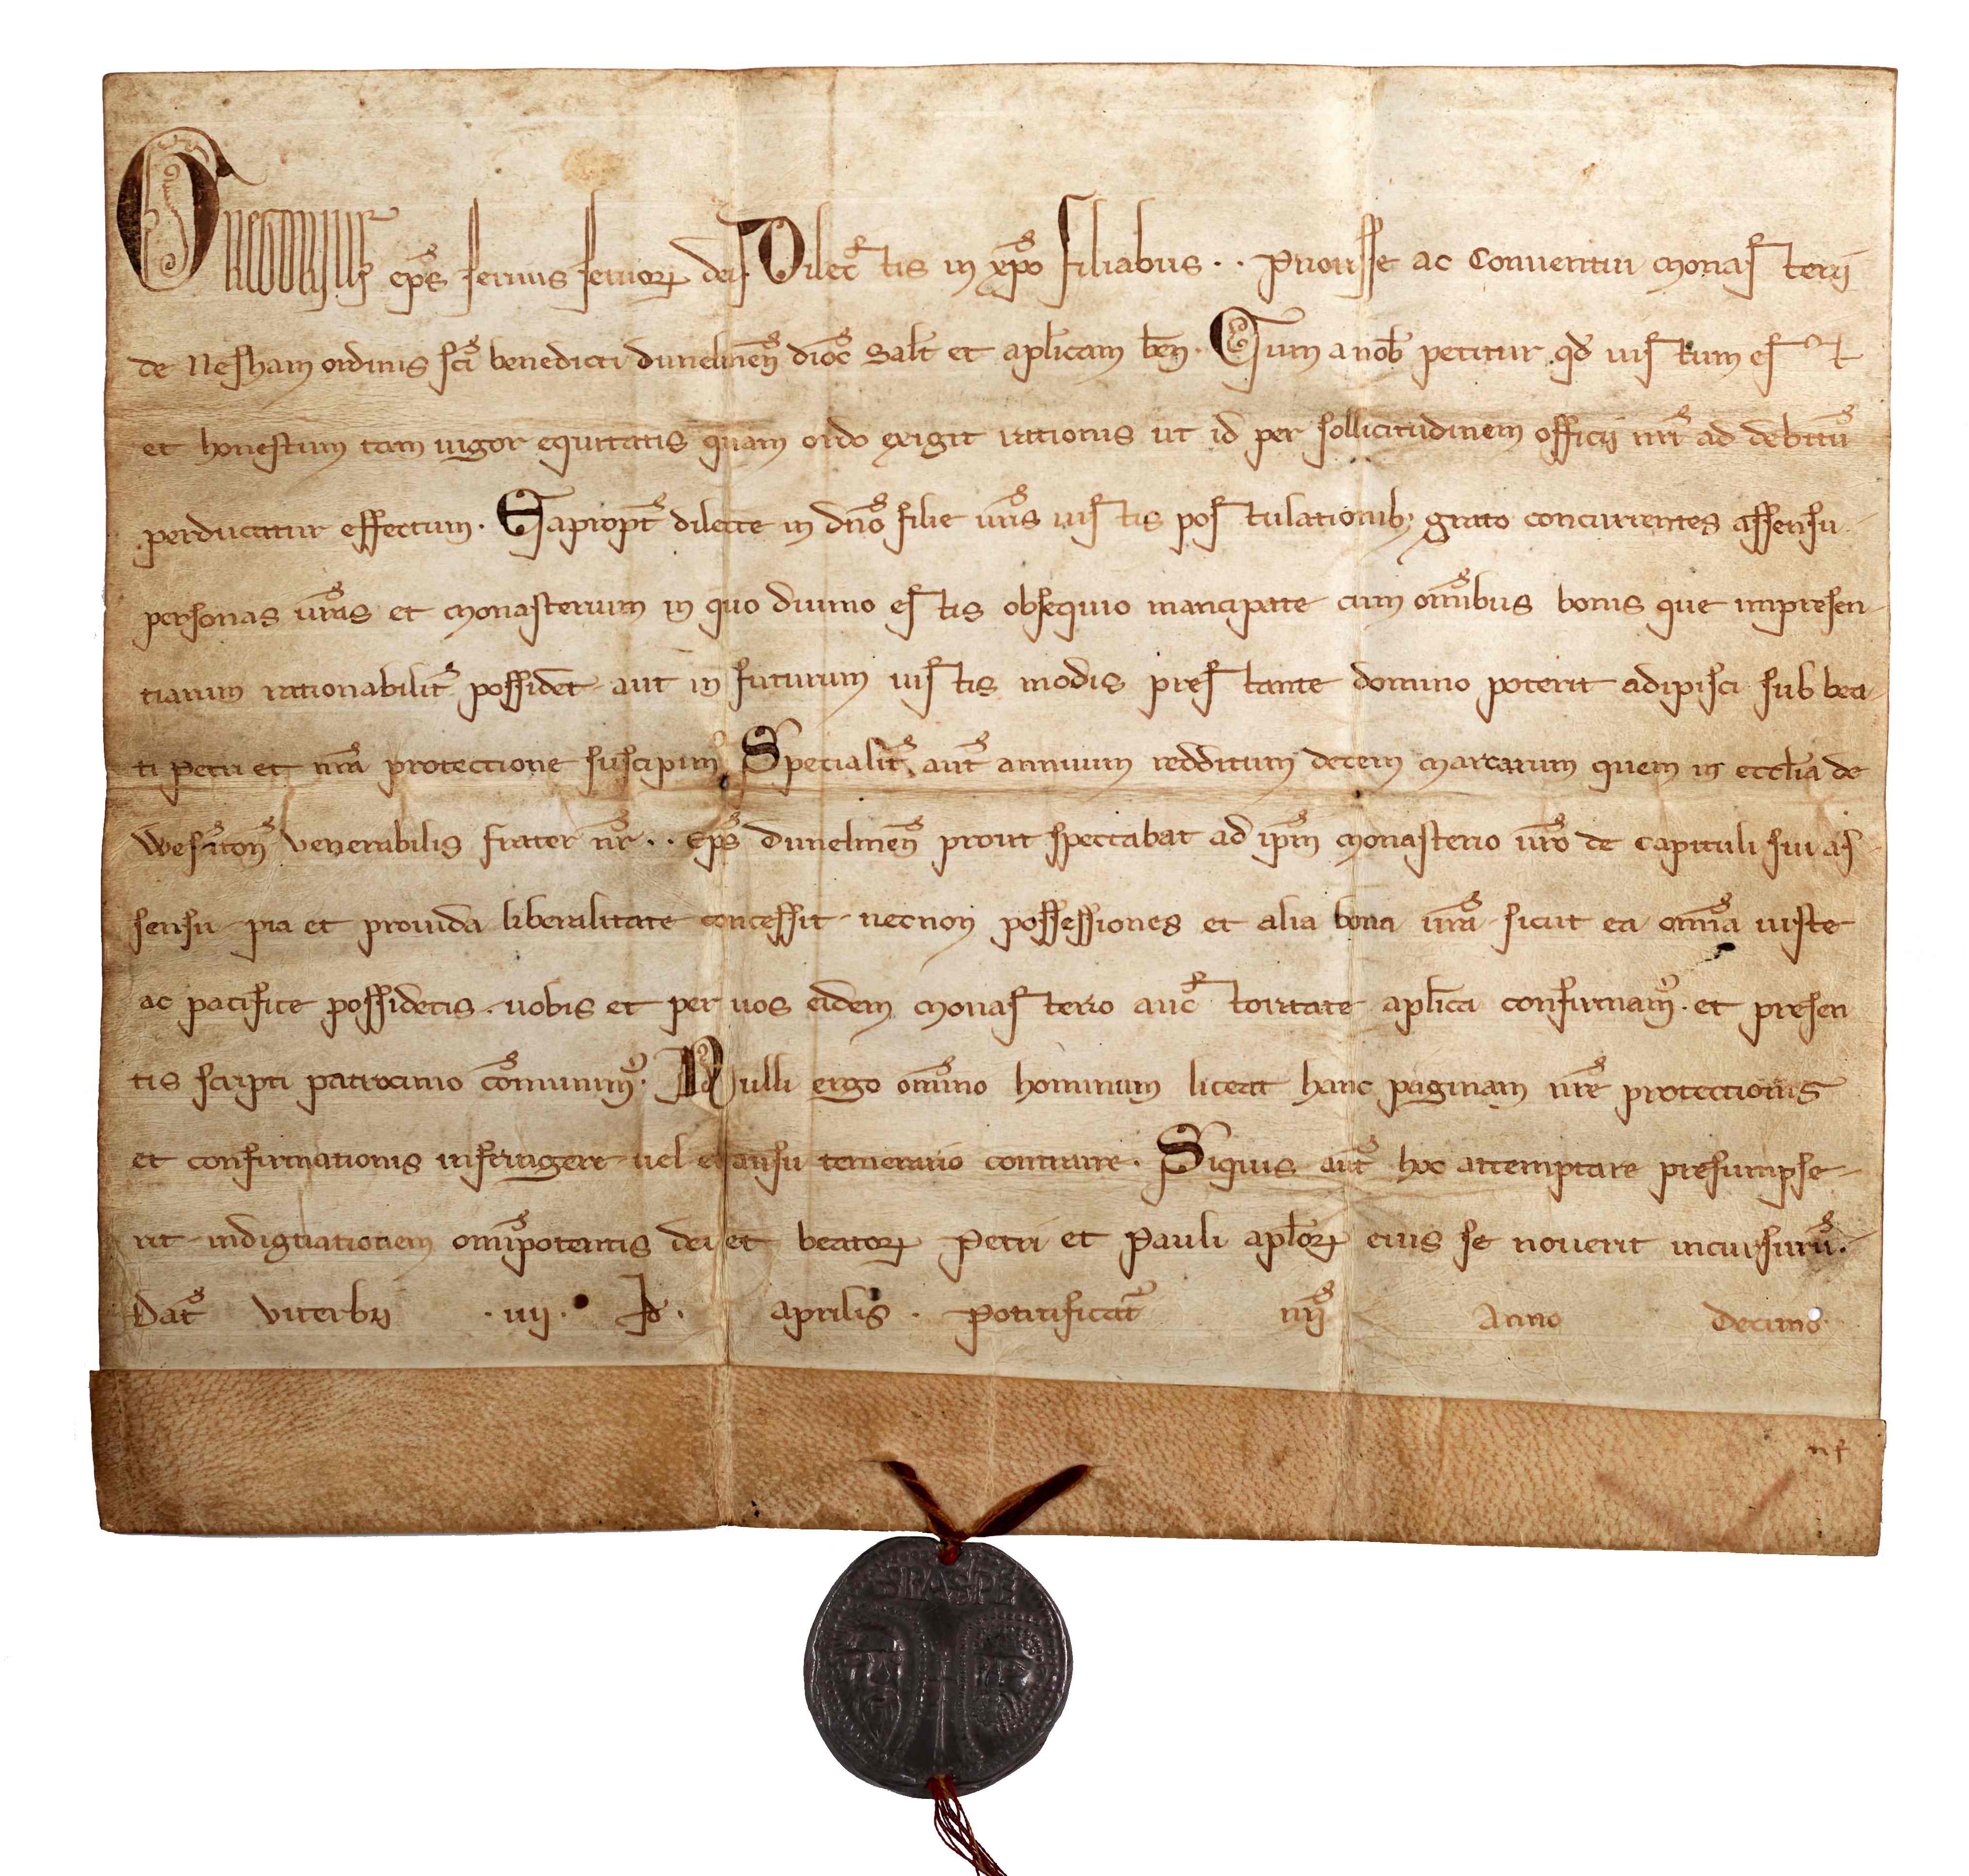 Gregorius ep̄s seruus seruoꝝ dei Dilectis in xp̄o filiabus . . Priorisse ac Conuentui Monasterij
de Nesham ordinis sc̄i benedicti dunelmen̄ dioc̄ Salt̄ et ap̄licam ben̄. Cum a nob̄ petitur qd̄ iustum est
et honestum tam uigor equitatis quam ordo exigit rationis ut id per sollicitudinem officij nr̄i ad debitū
perducatur effectum. Eapropt̄ dilecte in dn̄o filie ur̄is iustis postulationib; grato concurrentes assensu
personas ur̄as et Monasterium in quo diuino estis obsequio mancipate cum om̄ibus bonis que impresen-
tiarum rationabilit̄ possidet aut in futurum iustis modis prestante domino poterit adipisci sub bea-
ti Petri et nr̄a protectione suscipim⁹ Specialit̄ aut̄ annuum redditum decem Marcarum quem in eccl̄ia de
Wesiton̄ venerabilis frater nr̄ . . Ep̄s Dunelmen̄ prout spectabat ad ip̄m Monasterio ur̄o de Capituli sui as-
sensu pia et prouida liberalitate concessit necnon possessiones et alia bona ur̄a sicut ea om̄ia iuste
ac pacifice possidetis uobis et per uos eidem Monasterio auctoritate ap̄lica confirmam⁹ et presen
tis scripti patrocinio com̄unim⁹. Nulli ergo om̄ino hominum liceat hanc paginam nr̄e protectionis
et confirmationis infringere uel ei ausu temerario contraire. Siquis aut̄ hoc attemptare presumpse-
rit indignationem om̄ipotentis dei et beatoꝝ Petri et Pauli ap̄loꝝ eius se nouerit incursurū.
Dat̄ Viterbij . iiij . Id . Aprilis . Pontificat̄ nr̄i Anno Decimo
nf
SPASPE